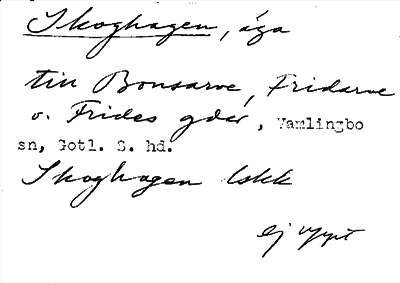 Skoghagen, äga
till Bonsarve, Fridarve
o. Frides gdar, Vamlingbo
sn, Gotl. S. hd.
Skoghagen Iskk
ej uppt